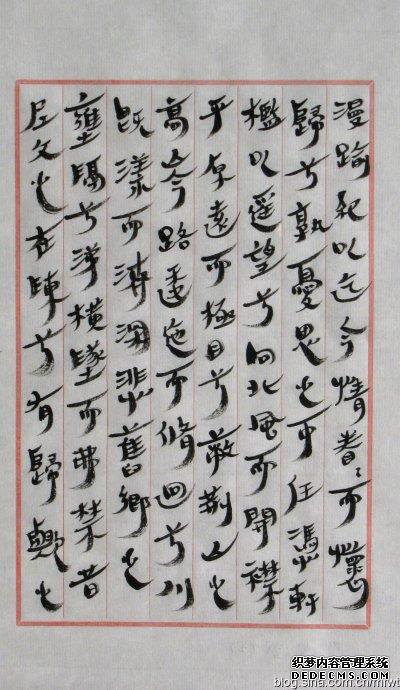 漫踰紀以迄今情眷々而懷
歸兮孰憂思之可任憑軒
檻以遥望兮向北風而開襟
平原遠而極目兮蔽荊山之
高岑路逶迤而脩迥兮川
既漾而濟深悲舊鄉之
壅隔兮涕橫墜而弗禁昔
尼父之在陳兮有歸歟之
织梦内容管理系统
DEDECMS.COM
blog.sina.com.cn/mfwt